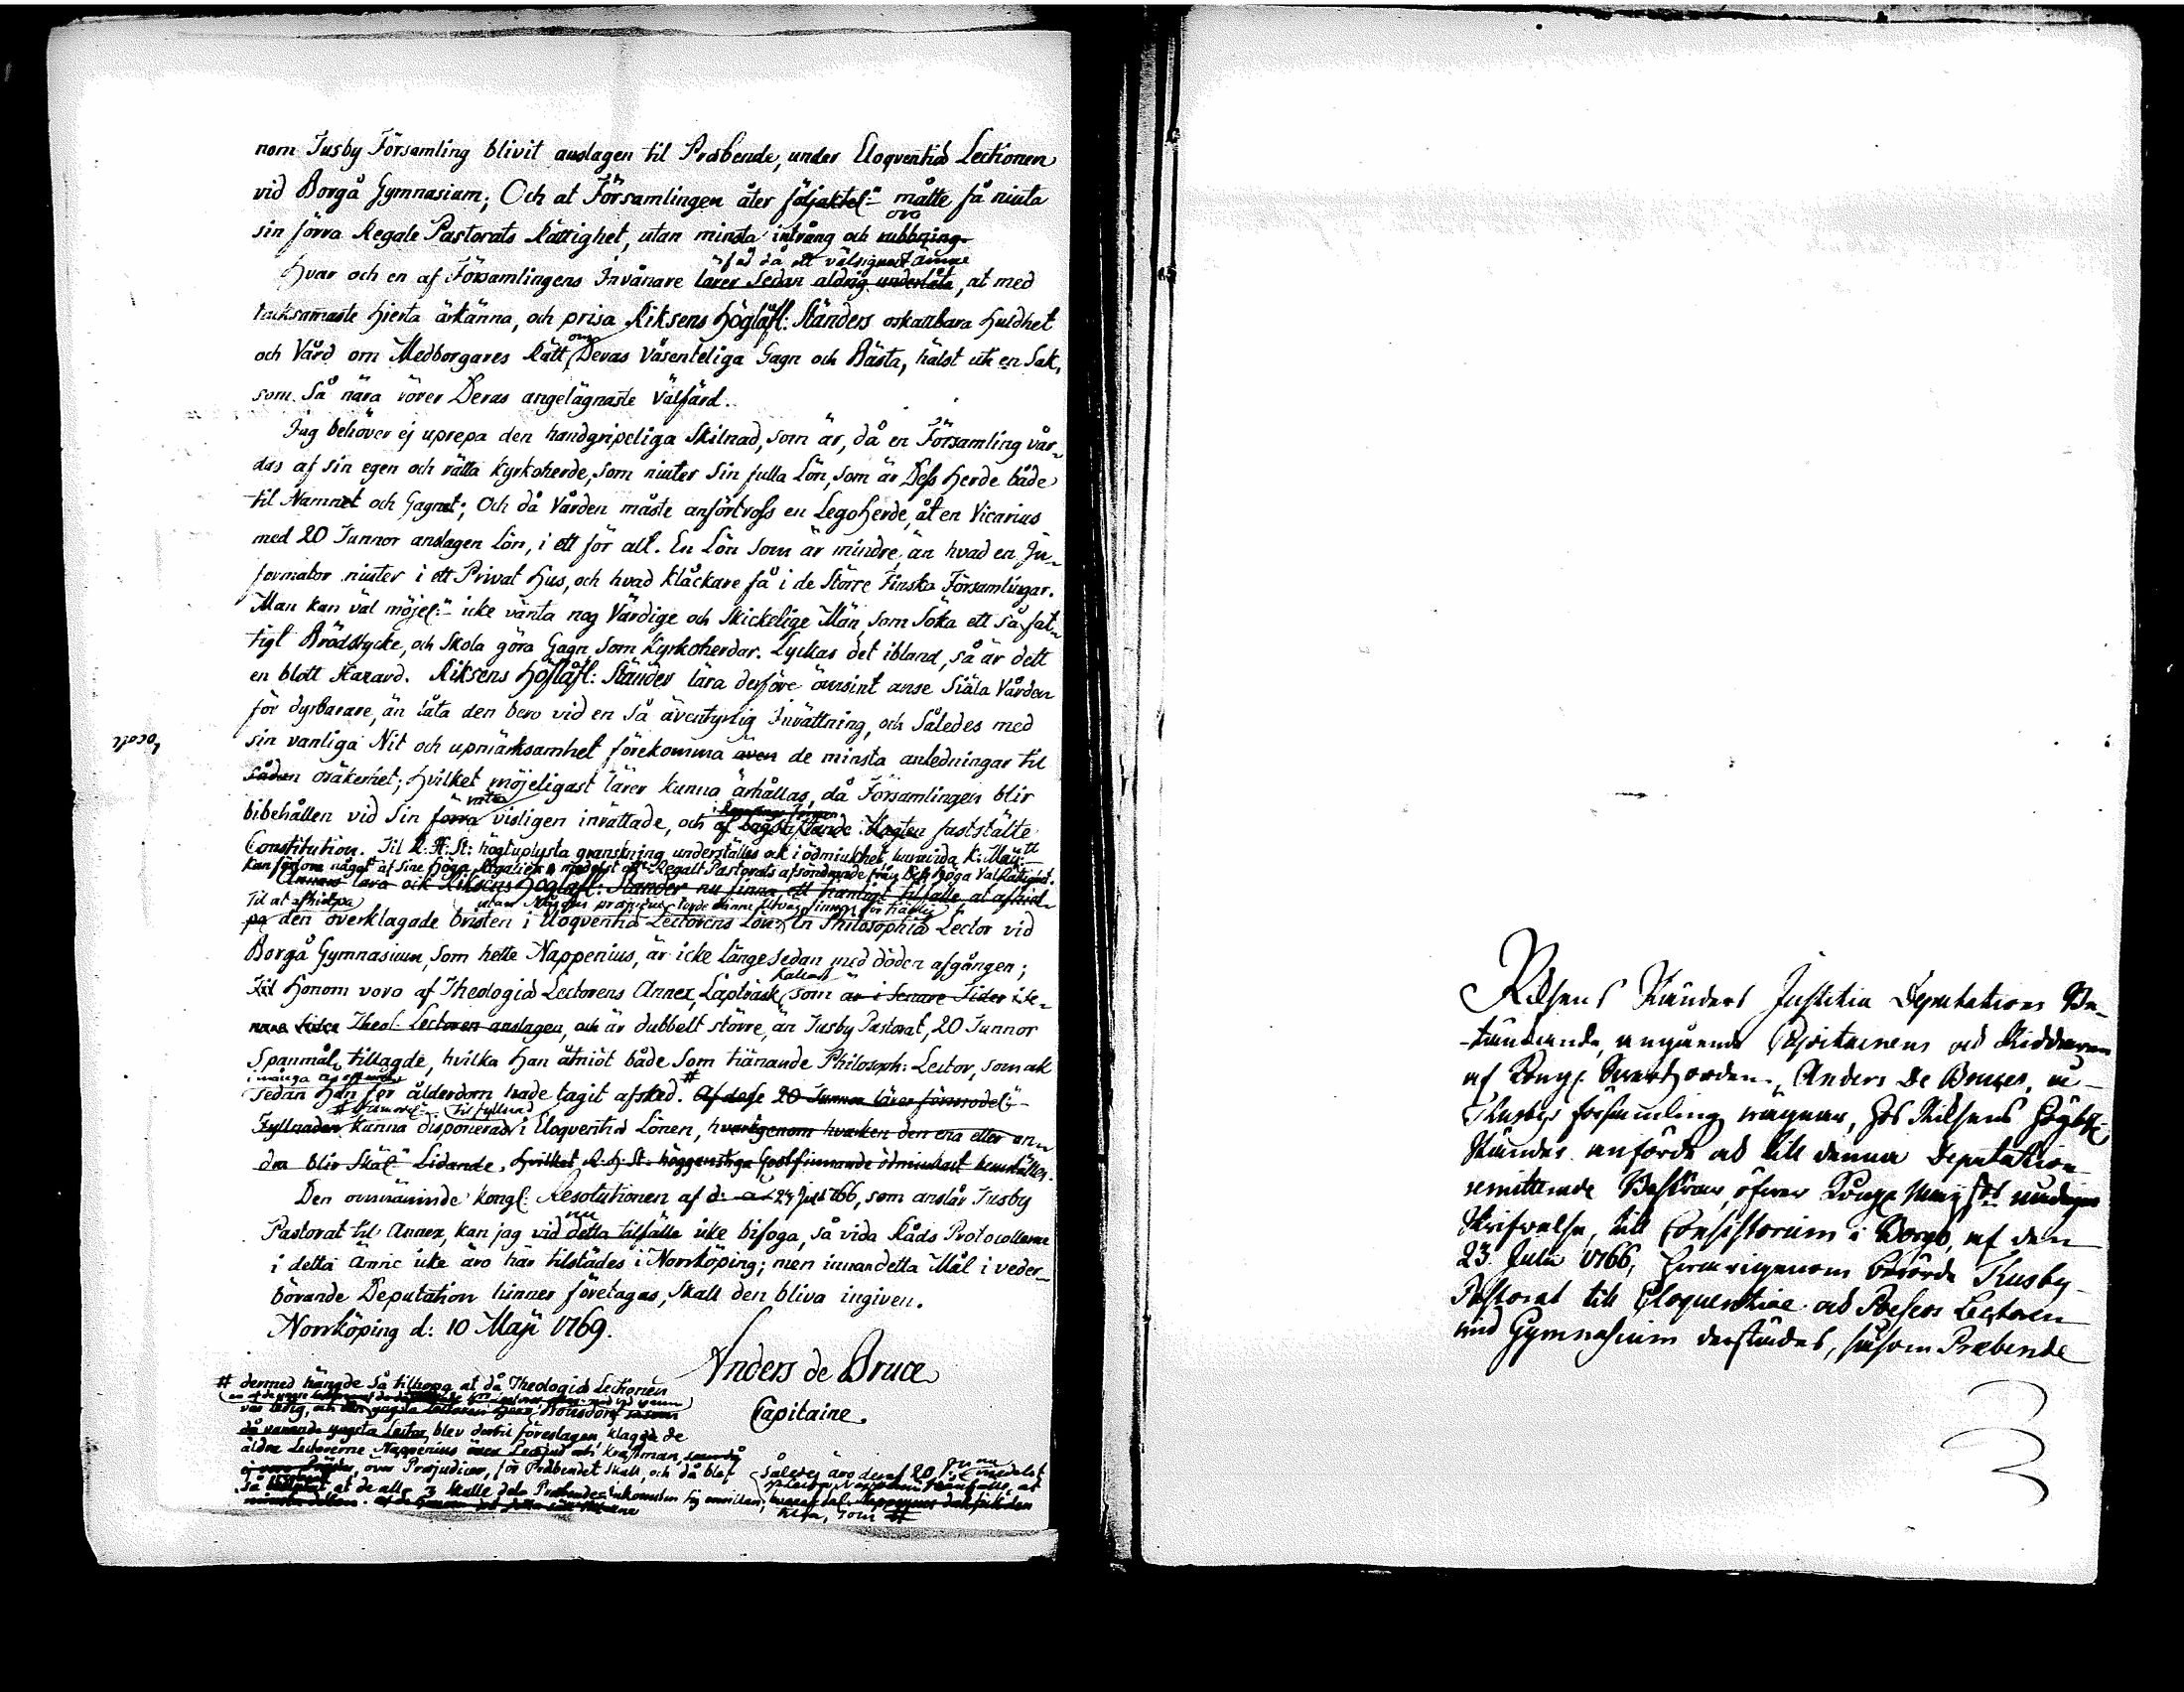 nom Tusby Församling blivit anslagen til Præbende, under Eloqventiæ Lectionen
vid Borgå Gymnasium; Och at Församlingen åter följaktel:n måtte få niuta
sin förra Regale Pastorats Rättighet, utan minsta intrång och rubbning
få då ett välsignat ämne
Hvar och en af Församlingens Invånare lärer sedan aldrig underlåta, at med
tacksammaste Hierta ärkänna, och prisa Riksens Höglåfl: Ständers oskattbara Huldhet
och Vård om Medborgares Rätt, om Deras väsenteliga Gagn och Bästa, hälst uti en Sak,
som så nära rörer Deras angelägnaste välfärd.
Jag behöver ej uprepa den handgripeliga Skilnad, som är, då en Församling vår-
das af sin egen och rätta Kyrkoherde, som niuter sin fulla Lön, som är Dess Herde både
til Namnet och Gagnet; Och då Vården måste anförtros en LegoHerde, åt en Vicarius
med 20 Tunnor anslagen Lön, i ett för alt. En Lön som är mindre, än hvad en In-
formator niuter i ett Privat Hus, och hvad Klåckare få i de Större Finska Församlingar.
Man kan väl möjel:n icke vänta nog Värdige och Skickelige Män, som Söka ett så fat-
tigt Brödstycke, och Skola göra Gagn, som Kyrkoherdar. Lyckas det ibland, så är dett
en blott Hazard. Riksens Höglåfl: Ständer lära derföre ömsint anse Siäla Vården
för dyrbarare, än låta den bero vid en så äventyrlig Inrättning, och Således med
sin vanliga Nit och upmärksamhet förekomma även de minsta anledningar til
sådan osäkerhet; Hvilket möjeligast lärer kunna ärhållas, då Församlingen blir
bibehållen vid Sin förra visligen inrättade, och af Lagstiftande Magten fastställte
Constitution. Til R. H. St: högtuplysta granskning underställes ock i ödmiukhet huruvida K: Maij:tt
kan förlora något af Sine Höga Regalier medelst ett Regalt Pastorats afsöndrande från Dess höga ValRätighet.
Annars lära ock Riksens Höglåfl: Ständer nu finna ett hemligt tilfälle, at afhiel-
Til at afhielpa
pa den överklagade bristen i Eloqventiæ Lectorens Lön. En Philosophiæ Lector vid
Borgå Gymnasium, som hette Nappenius, är icke längesedan med döden afgången;
Til Honom voro af Theologiæ Lectorens Annex, Lapträsk kallad, som är i Senare Tider i Se-
nare tider Theol. Lectoren anslagen, och är dubbelt större, än Tusby Pastorat, 20 Tunnor
Spanmål tillagde, hvilka Han åtniöt både Som tiänande Philosoph: Lector, som ock
i många år
sedan Han för ålderdom hade tagit afsked. # Af dese 20 Tunnor lärer
til fyllnad
Fyllnaden kunna disponeras i Eloqventiæ Lönen, hvarigenom hvarken den ena eller an-
dra blir Skäl:n Lidande. Hvilket R. H. St: höggunstiga Godtfinnande ödmiukast hemställes.
Den ovannämnde Kongl: Resolutionen af d: 23 Juli 1766, som anslår Tusby
Pastorat til Annex, kan jag vid detta tilfälle nu icke bifoga, så vida Råds Protocollerne
i detta Ämne icke äro här tilstädes i Norrköping; men innan detta Mål i veder-
börande Deputation hinner företagas, Skall den bliva ingiven.
Norrköping d: 10 Maji 1769.
Anders de Bruce
Capitaine.
# dermed hängde så tilhopa at då Theologiæ Lectionen
var ledig, och
då varande yngsta Lector, blev dertil föreslagen, klagade de
äldre Lectorerne Nappenius och Krafman,
över Præjudicer, för Præbendet skull, och då blef
så at de alle 3 skulle dela Præbende inkomsten sig emellan,
Således äro dessa 20
Riksens Ständers Justitiæ Deputations Be-
tänkande, angående Capitainens och Riddaren
af Kongl. Swärdsorden, Anders De Bruces, å
Thusby församling wägnar, hos Riksens Höglofl.
Ständer anförde och till denna Deputation
remitterade Beswär, öfwer Kongl. Maij:ts nådiga
Skrifwelse, till Consistorium i Borgo, af den
23 Julii 1766, hwarigenom berörde Thusby
Pastorat till Eloquentiæ och Poëseos Lectoren
wid Gymnasium derstädes, såsom Præbende